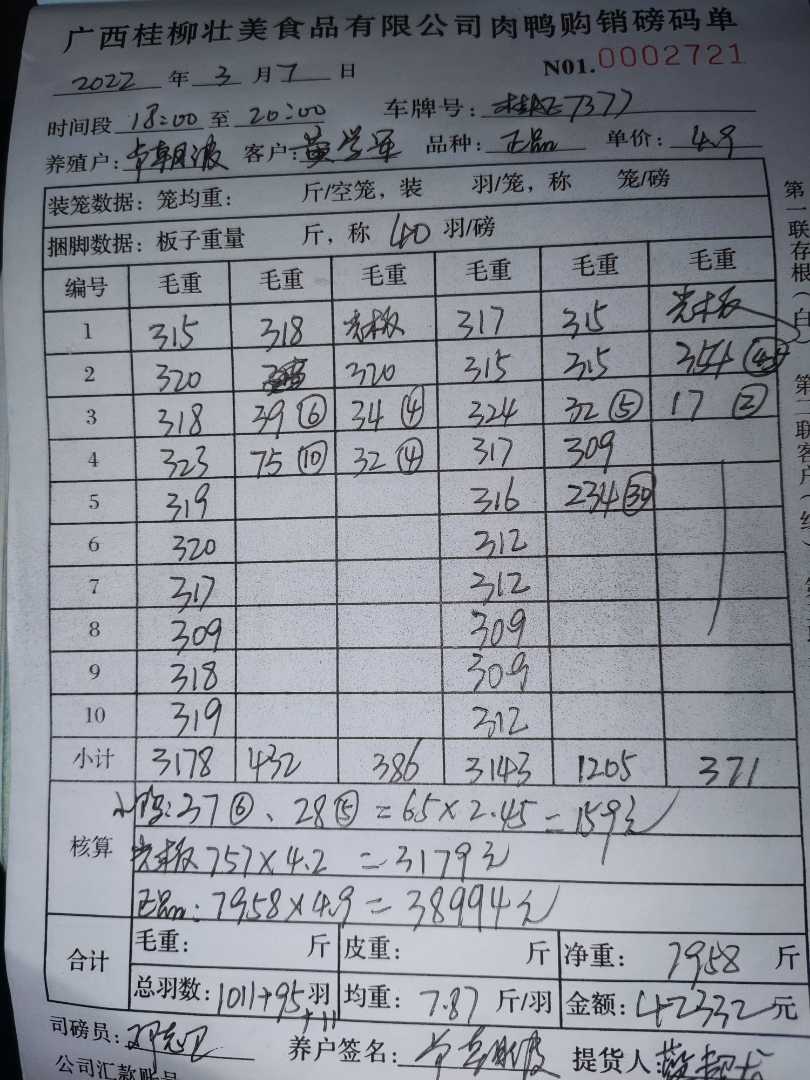 广西桂柳壮美食品有限公司肉鸭购销磅码单
2022 年 3 月 7 日 N01.0002721
时间段 18:00 至 20:00 车牌号: 7377
养殖户: 韦朝波 客户: 黄学军 品种: 正品 单价: 4.9
装笼数据: 笼均重: 斤/空笼, 装 羽/笼, 称 笼/磅
捆脚数据: 板子重量 斤, 称 40 羽/磅
编号 毛重 毛重 毛重 毛重 毛重 毛重
1 315 318 光板 317 315 光板
2 320 320 315 315 354
3 318 39⑥ 34④ 324 32⑤ 17②
4 323 75⑩ 32④ 317 309
5 319 316 234㉚
6 320 312
7 317 312
8 309 309
9 318 309
10 319 312
小计 3178 432 386 3143 1205 371
核算
37⑥、28⑤=65×2.45=159元
光板 757×4.2 =3179元
正品: 7958×4.9=38994元
合计
毛重: 斤 皮重: 斤 净重: 7958 斤
总羽数: 1011+95 羽 均重: 7.87 斤/羽 金额: 42332 元
+11
司磅员: 养户签名: 韦朝波 提货人:
公司汇款账号
第一联存根(白) 第二联客户(红)